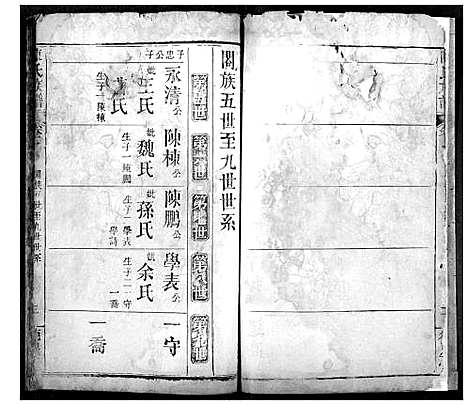 闔族五世至九世世系
第五世
第六世
第七世
第八世
第九世
子忠公子
永清公
妣王氏
氏
生子一陳棟
陳棟公
妣魏氏
生子一陳鵬
陳鵬公
妣孫氏
生子二學表
學詩
學表公
妣余氏
生子二一守
一喬
一守
一喬
五世至九世世系